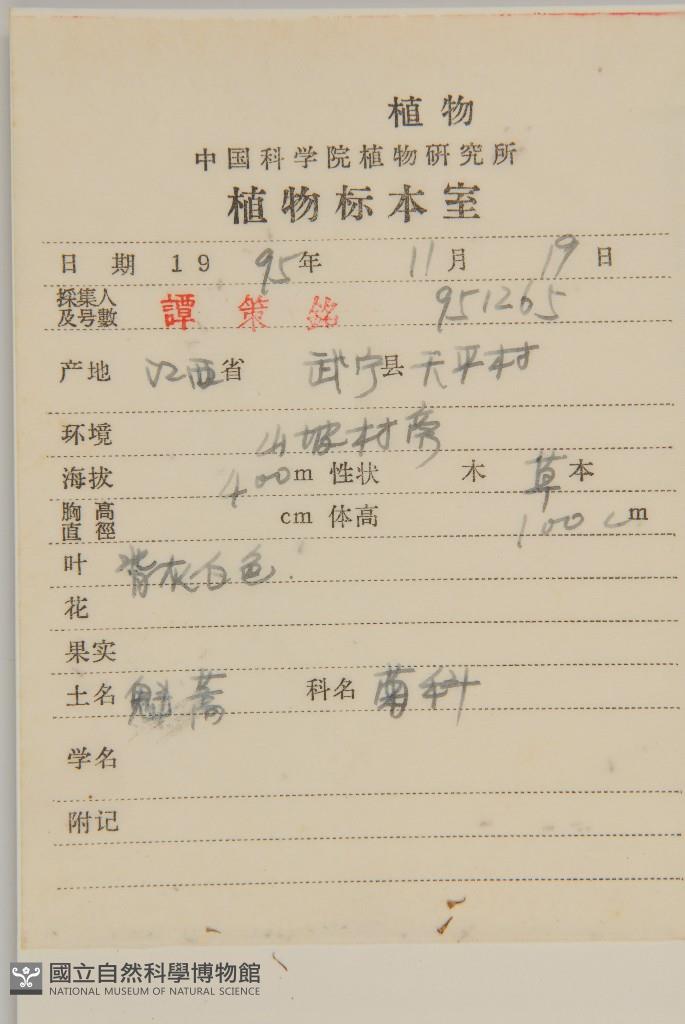 植物
中国科学院植物研究所
植物标本室
日 期 19 95年 11月 19日
採集人
及号數 譚策銘 951265
产地 江西省 武宁县 天平村
环境 山坡村旁
海拔 400m 性状 木 草本
胸高
直徑 cm 体高 100cm
叶 背灰白色
花
果实
土名 魁蒿 科名 菊科
学名
附记
國立自然科學博物館
NATIONAL MUSEUM OF NATURAL SCIENCE